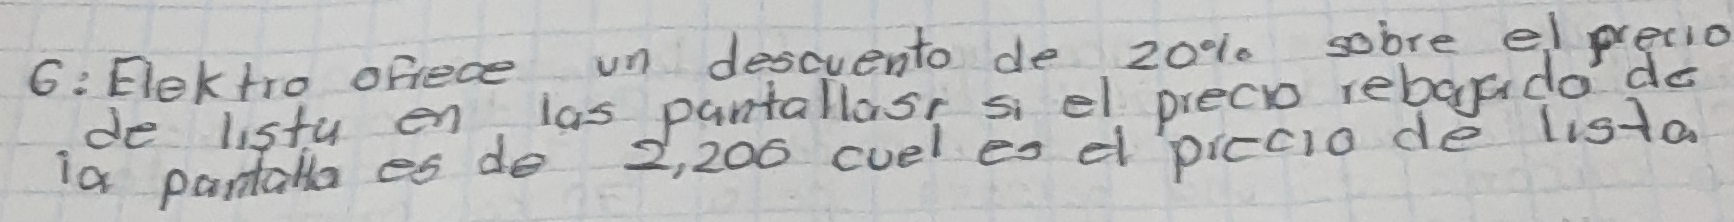 6: Elektro ofrece un descuento de 20% sobre el precio
de lista en las pantallas, si el precio rebajado de
la pantalla es de 2,200 cuel es el precio de lista